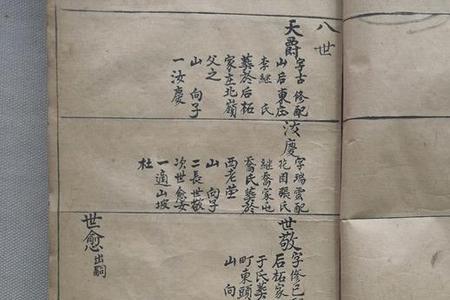 八世
天爵
字古修配
山后東庄
李継氏
葬於后柘
家庄北嶺
父之
山向子
一汝慶
汝慶
字瑞雲配
花园張氏
継喬家屯
喬氏葬於
西老塋
山向子
二長世敬
次世愈女
一適山坡
杜
世敬
字修已
后柘家
于氏葬
町東頭
山向
世愈出嗣